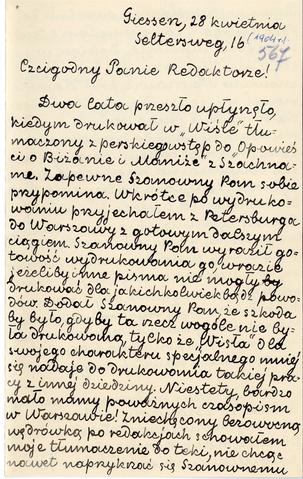 Giessen, 28 kwietnia
Seltersweg, 16 (1904 r.)
567
Czcigodny Panie Redaktorze!
Dwa lata przeszło upłynęło,
kiedym drukował w „Wiśle" tłu-
maczony z perskiego wstęp do „Opowieś-
ci o Biżanie i Maniże" z Szachna-
me. Zapewne Szanowny Pan sobie
przypomina. Wkrótce po wydruko-
waniu przyjechałem z Petersburga
do Warszawy z gotowym dalszym
ciągiem. Szanowny Pan wyraził go-
towość wydrukowania go, wrazie
jeżeliby inne pisma nie mogły by
drukować dla jakichkolwiekbądź powo-
dów. Dodał Szanowny Pan, że szkoda
by było, gdyby ta rzecz wogóle nie by-
ła drukowana, tylko że „Wisła" dla
swojego charakteru specjalnego mniej
się nadaje do drukowania takiej pra-
cy z innej dziedziny. Niestety, bardzo
mało mamy poważnych czasopism
w Warszawie! Zniechęcony bezowocną
wędrówką po redakcjach schowałem
moje tłumaczenie do teki, nie chcąc
nawet naprzykrzać się Szanownemu